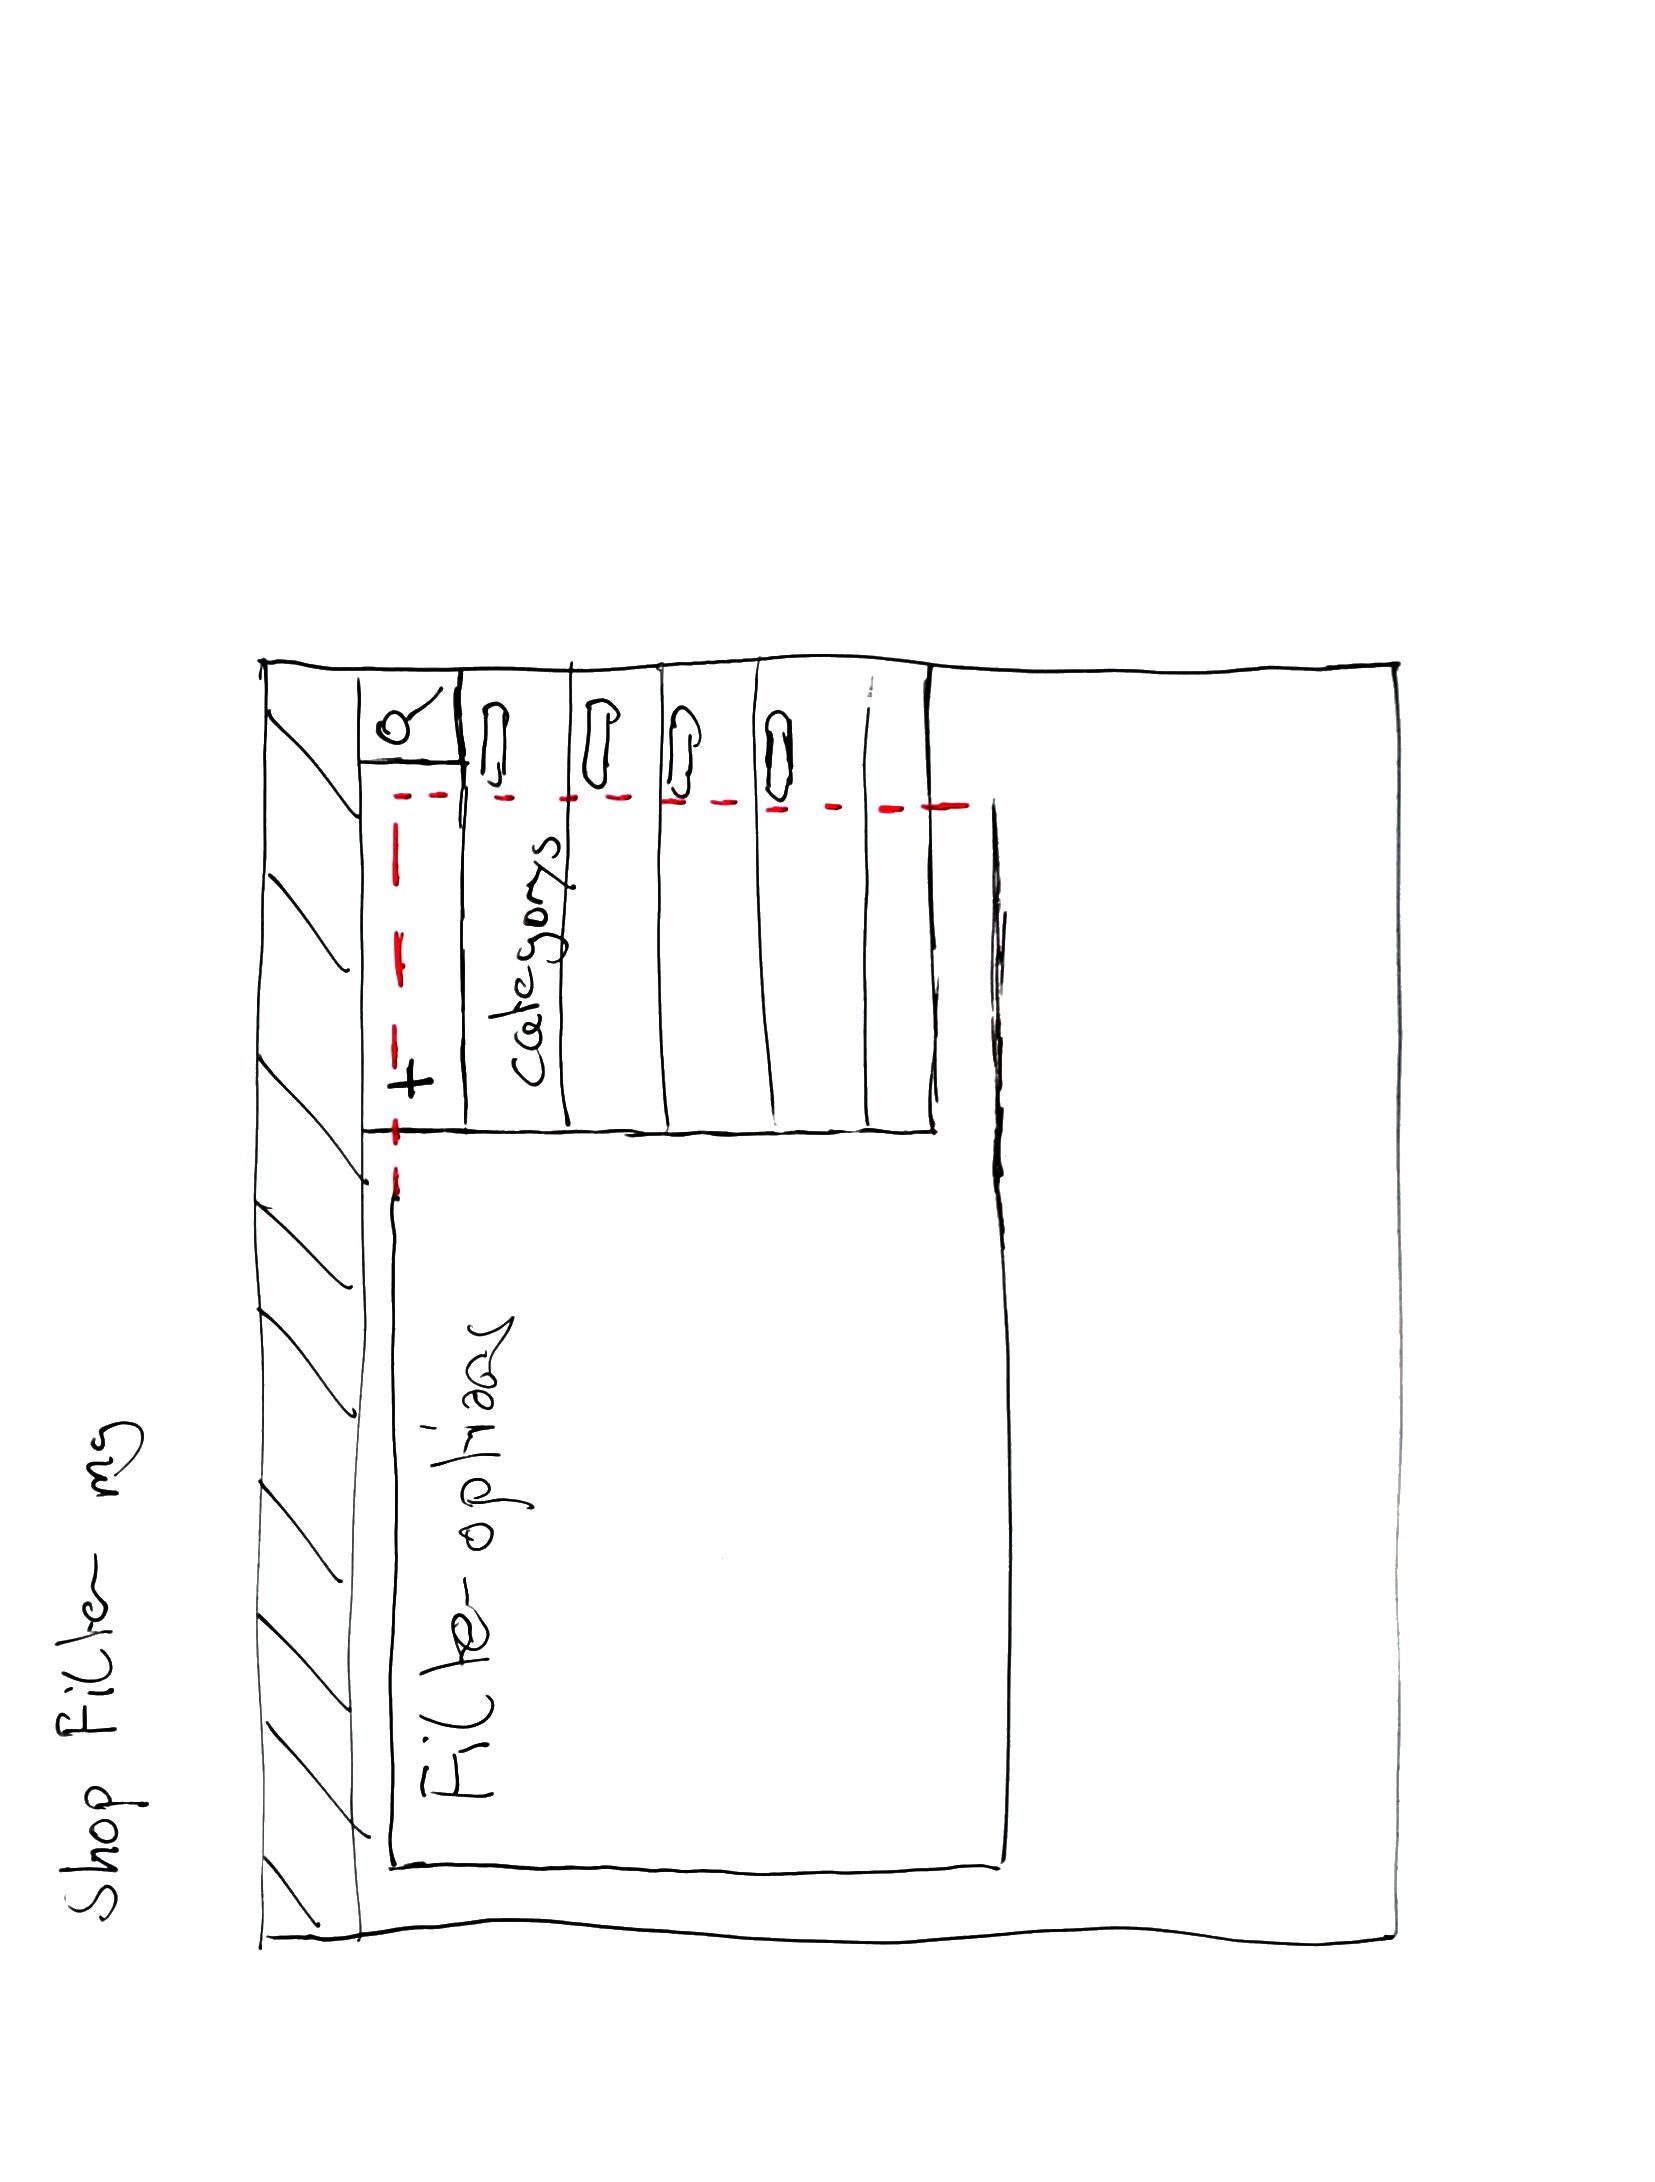 Shop Filter mg
+
Filter options
Categorys